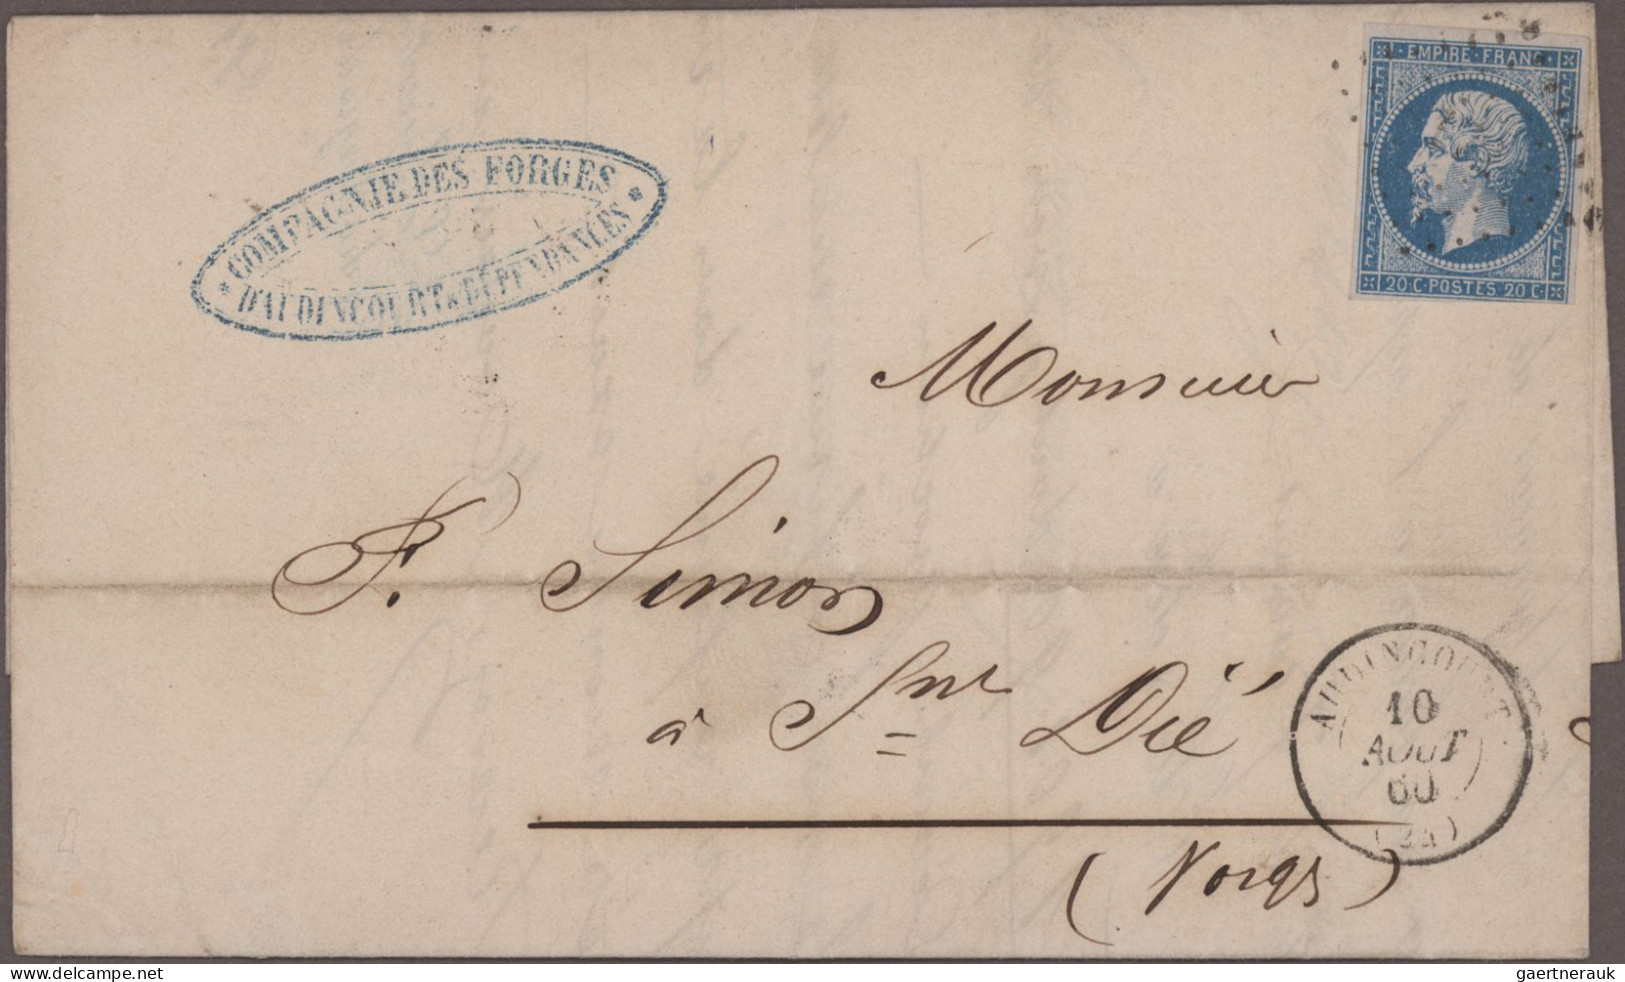 EMPIRE · FRANC ·
20 C · POSTES 20 C ·
* COMPAGNIE DES FORGES *
D'AUDINCOURT & DÉPENDANCES
Monsieur
F. Simon
à St Dié
(Vosges)
AUDINCOURT
10
AOUT
60
(24)
delcampe.net
gaertnerauk